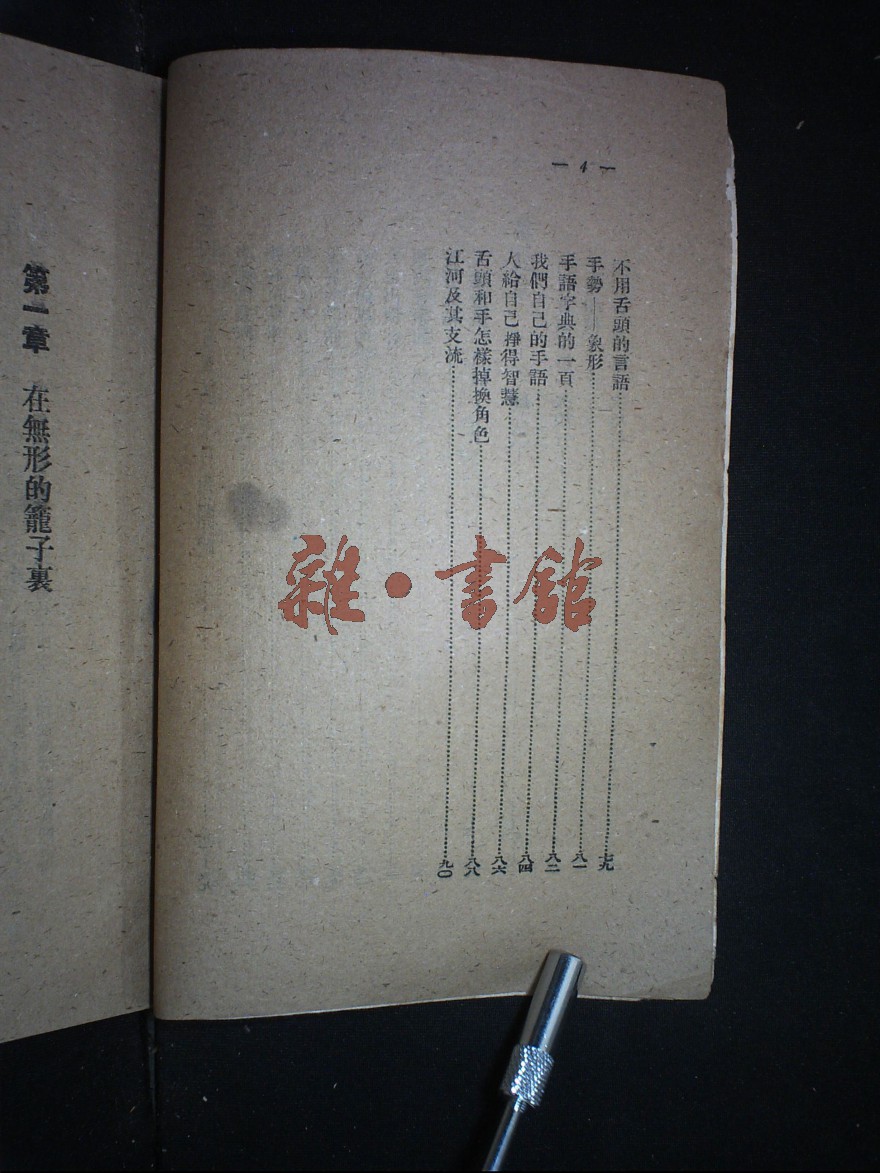 — 4 —
不用舌頭的言語……七九
手勢——象形……八一
手語字典的一頁……八二
我們自己的手語……八四
人給自己掙得智慧……八六
舌頭和手怎樣掉換角色……八八
江河及其支流……九〇
第一章 在無形的籠子裏
雜·書館